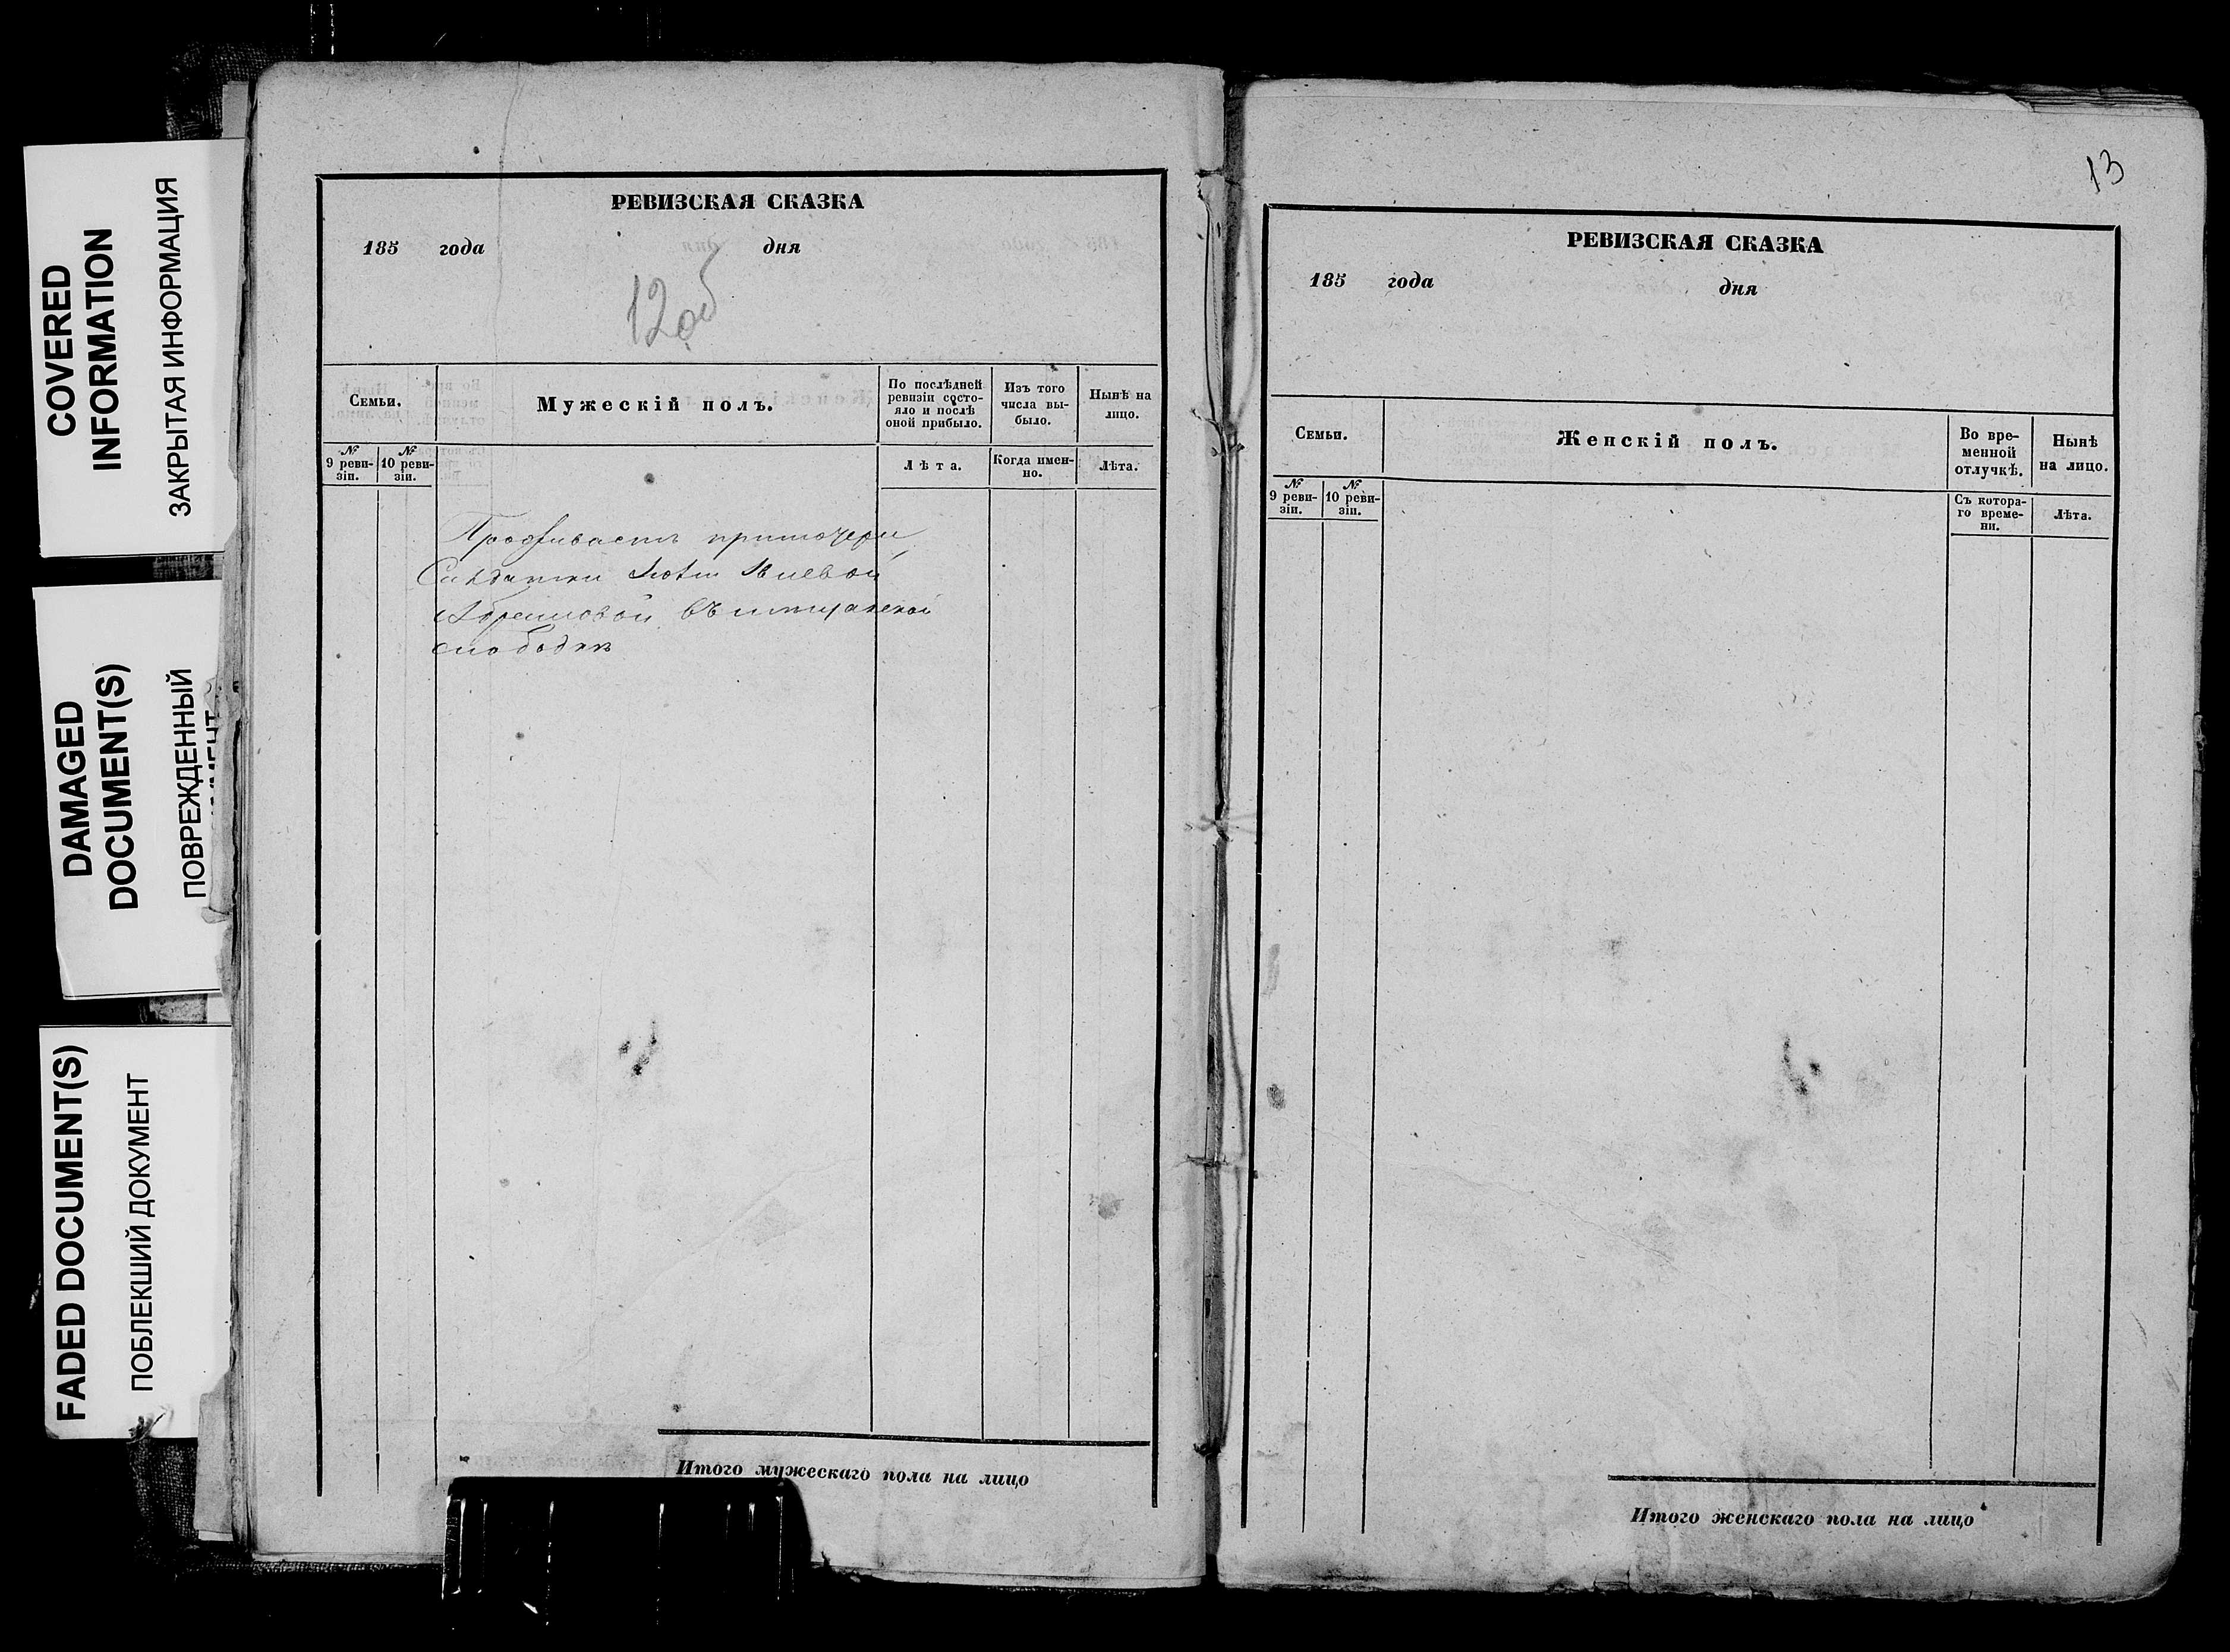 COVERED
INFORMATION
ЗАКРЫТАЯ ИНФОРМАЦИЯ
DAMAGED
DOCUMENT(S)
ПОВРЕЖДЕННЫЙ
FADED DOCUMENT(S)
ПОБЛЕКШИЙ ДОКУМЕНТ
РЕВИЗСКАЯ СКАЗКА
185 года дня
12об
Семьи.
Мужескій полъ.
По послѣдней
ревизіи состо-
яло и послѣ
оной прибыло.
Изъ того
числа вы-
было.
Нынѣ на
лицо.
№
9 реви-
зіи.
№
10 реви-
зіи.
Лѣта.
Когда имен-
но.
Лѣта.
Проживаетъ
въ
слободкѣ
Итого мужескаго пола на лицо
13
РЕВИЗСКАЯ СКАЗКА
185 года дня
Семьи.
Женскій полъ.
Во вре-
менной
отлучкѣ.
Нынѣ
на лицо.
№
9 реви-
зіи.
№
10 реви-
зіи.
Съ котора-
го време-
ни.
Лѣта.
Итого женскаго пола на лицо